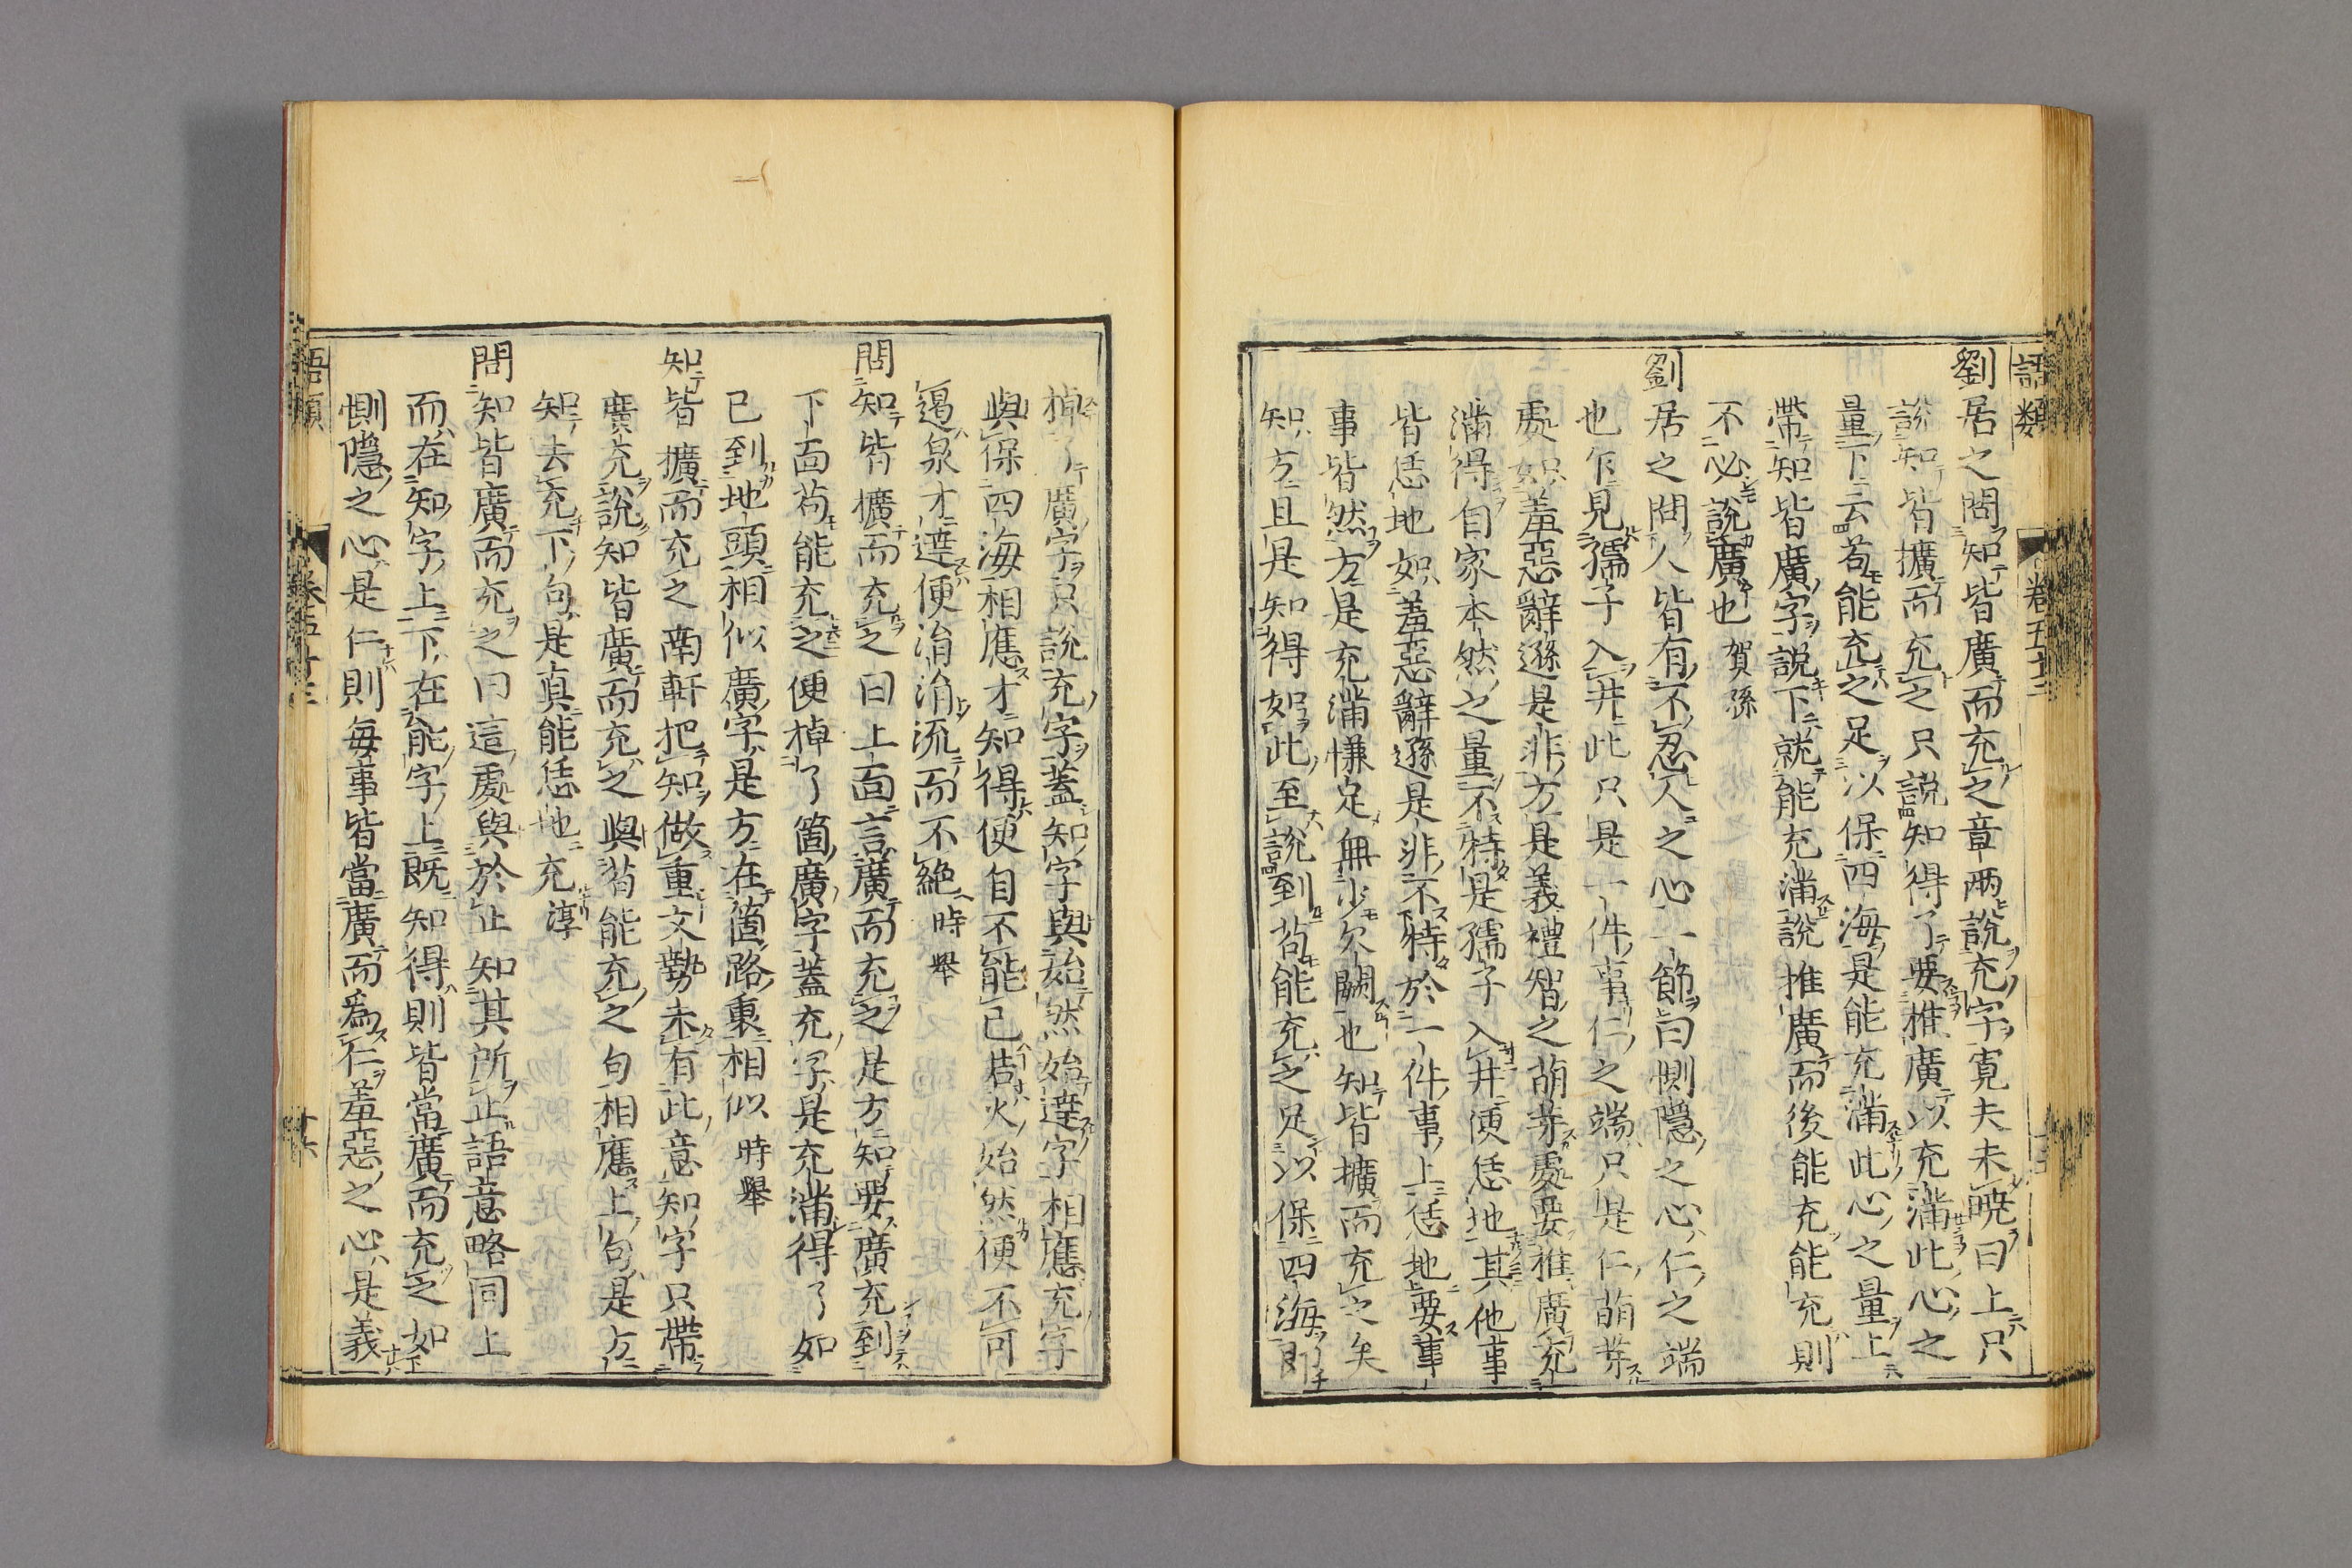 語類
卷五十三
劉居之問知皆廣而充之章兩說充字寛夫未曉曰上只
說知皆擴而充之只說知得了要推廣以充滿此心之
量下云苟能充之足以保四海是能充滿此心之量上
帶知皆廣字說下就能充滿說推廣而後能充能充則
不必說廣也賀孫
劉居之問人皆有不忍人之心一節曰惻隱之心仁之端
也乍見孺子入井此只是一件事仁之端只是仁萌芽
處如羞惡辭遜是非方是義禮智之萌芽處要推廣充
滿得自家本然之量不特是孺子入井便恁地其他事
皆恁地如羞惡辭遜是非不特於一件事上恁地要事
事皆然方是充滿慊足無少欠闕也知皆擴而充之矣
知方且是知得如此至說到苟能充之足以保四海即
掉了廣字只說充字蓋知字與始然始達字相應充字
與保四海相應才知得便自不能已若火始然便不可
遏泉才達便涓涓流而不絶時舉
問知皆擴而充之曰上面言廣而充之是方知要廣充到
下面苟能充之便掉了箇廣字蓋充字是充滿得了如
已到地頭相似廣字是方在箇路裏相似時舉
知皆擴而充之南軒把知做重文勢未有此意知字只帶
廣充說知皆廣而充之與苟能充之句相應上句是方
知去充下句是真能恁地充淳
問知皆廣而充之曰這處與於止知其所止語意略同上
而在知字上下在能字上既知得則皆當廣而充之如
惻隱之心是仁則每事皆當廣而爲仁羞惡之心是義